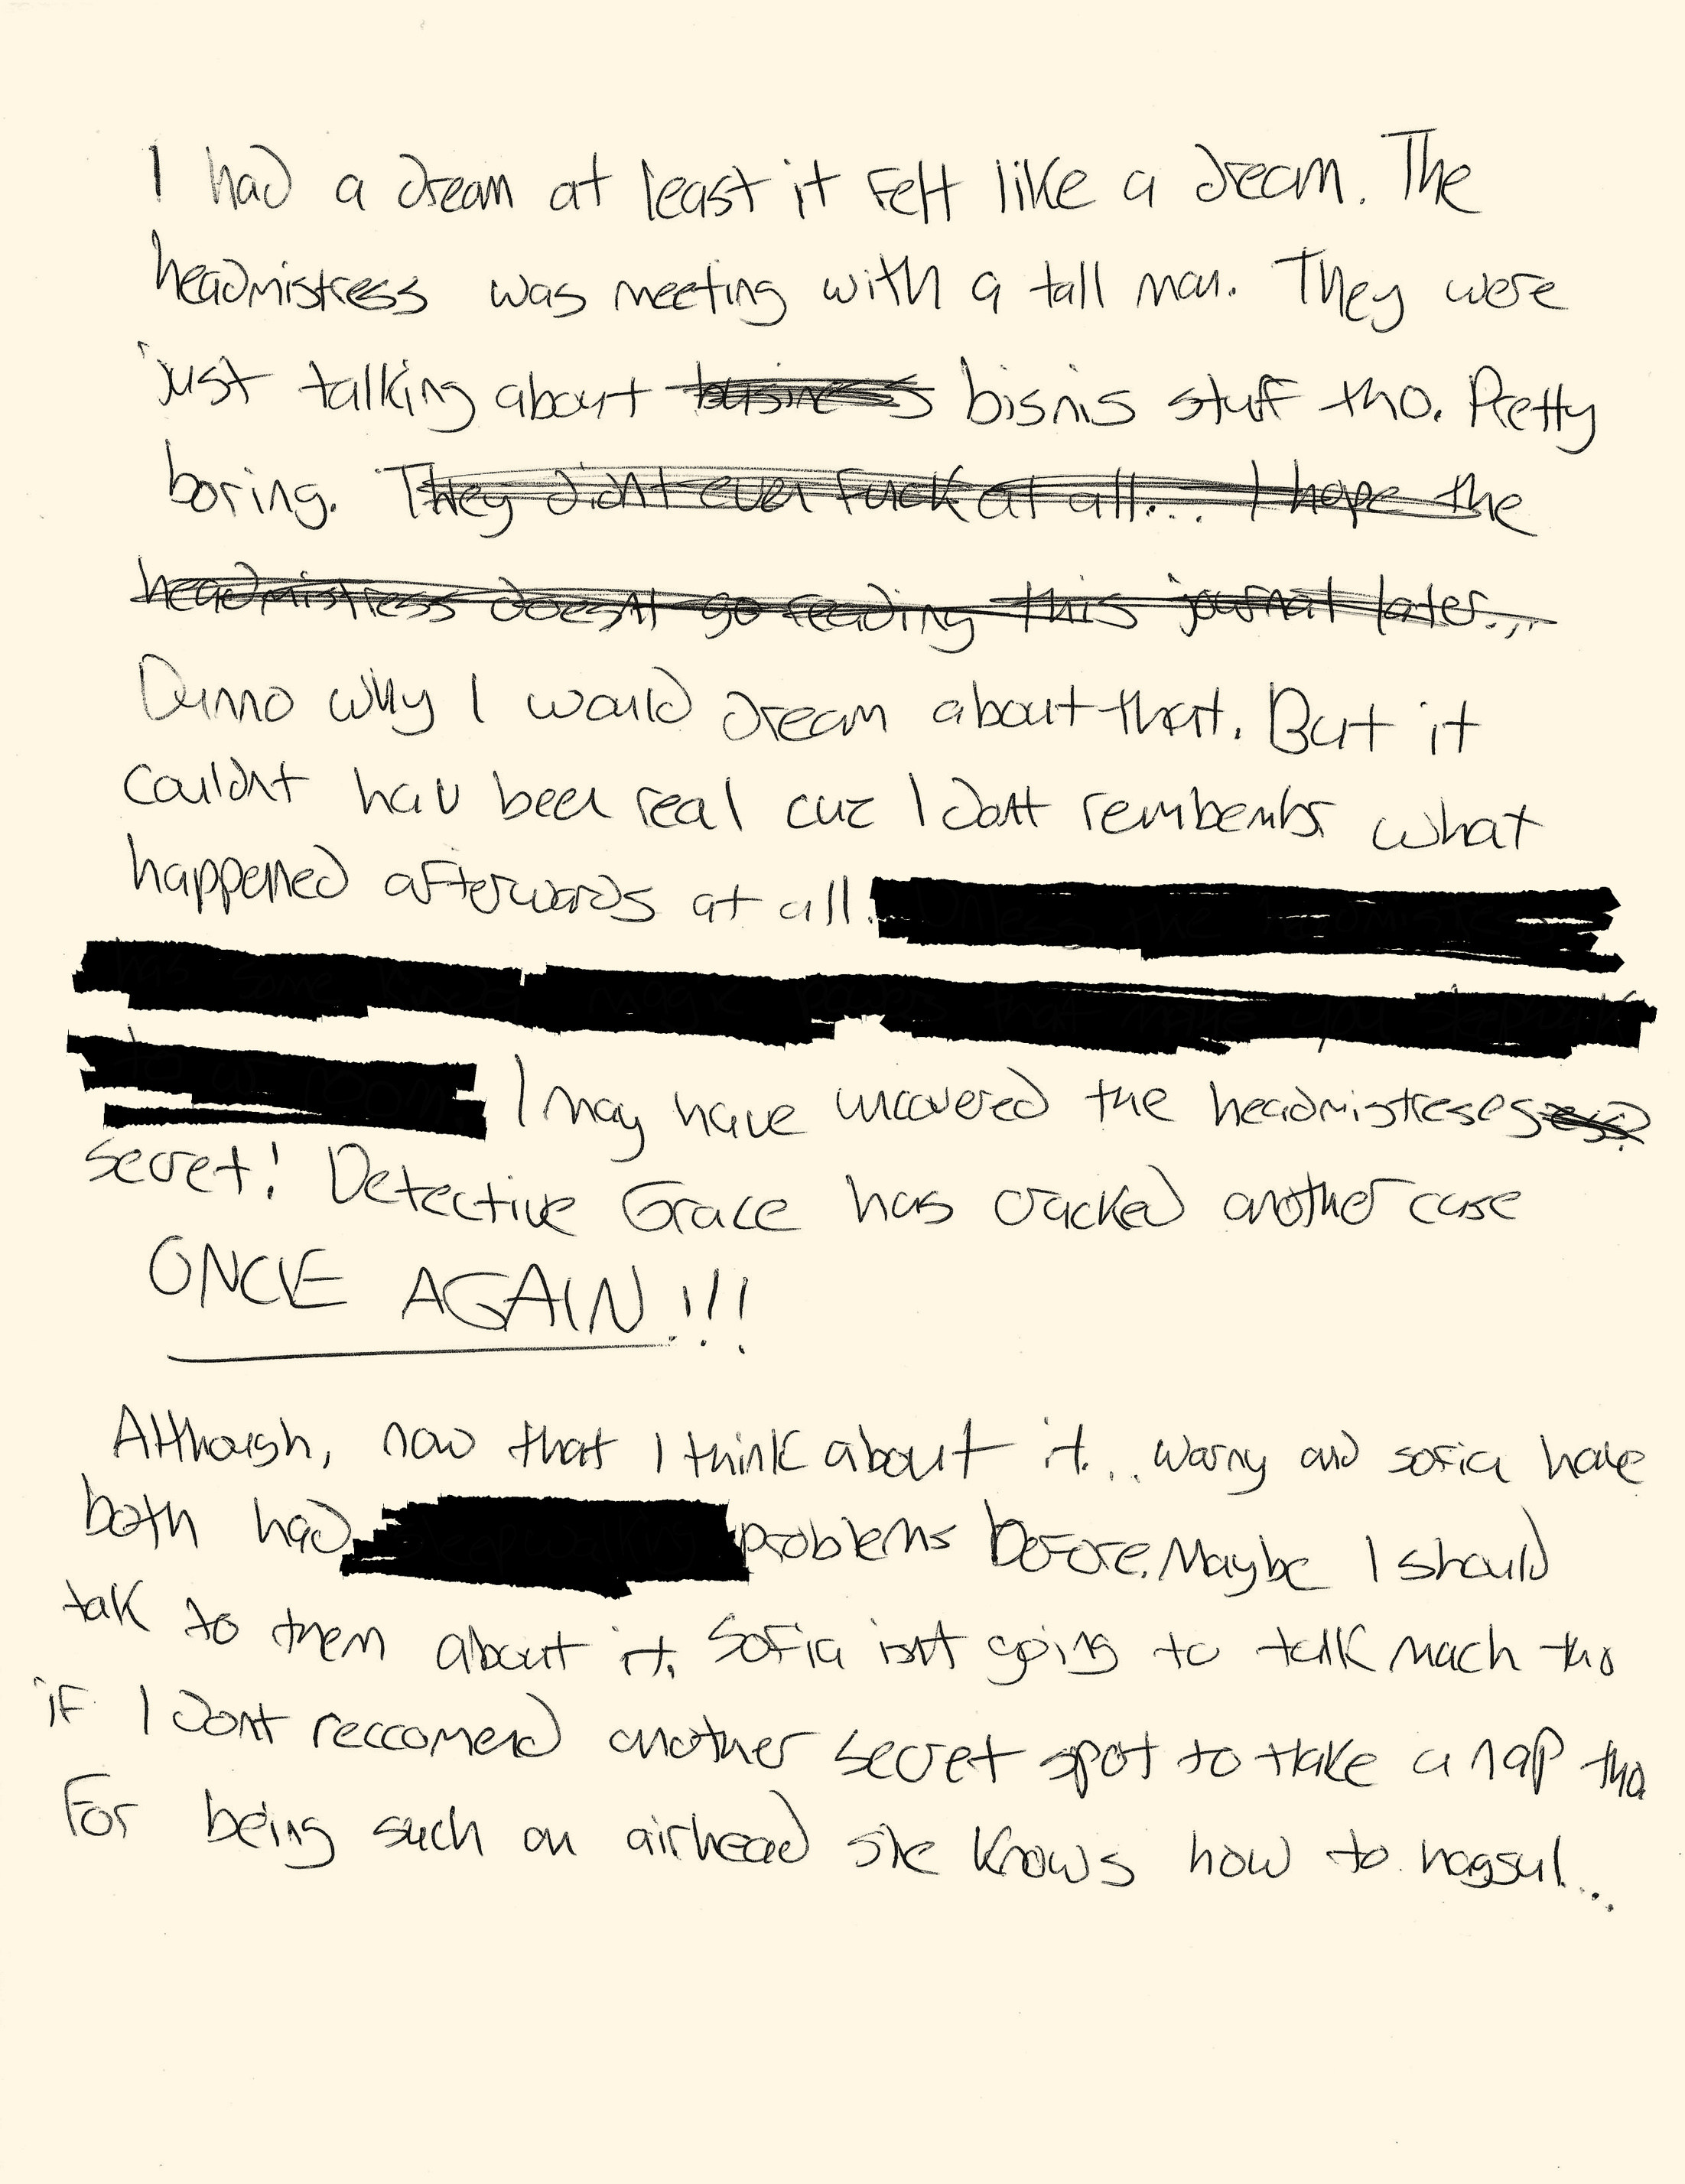 I had a dream at least it felt like a dream. The
headmistress was meeting with a tall man. They were
just talking about business bisnis stuff tho. Pretty
boring. They didnt even fuck at all... I hope the
headmistress doesnt go reading this journal later...
Dunno why I would dream about that. But it
couldnt hav been real cuz I dont rembembr what
happened afterwards at all.
I may have uncovered the headmistreses
secret! Detective Grace has cracked another case
ONCE AGAIN!!!
Although, now that I think about it... and sofia have
both had problems before. Maybe I should
talk to them about it. Sofia isnt going to talk much tho
if I dont reccomend another secret spot to take a nap tho
For being such an airhead she knows how to